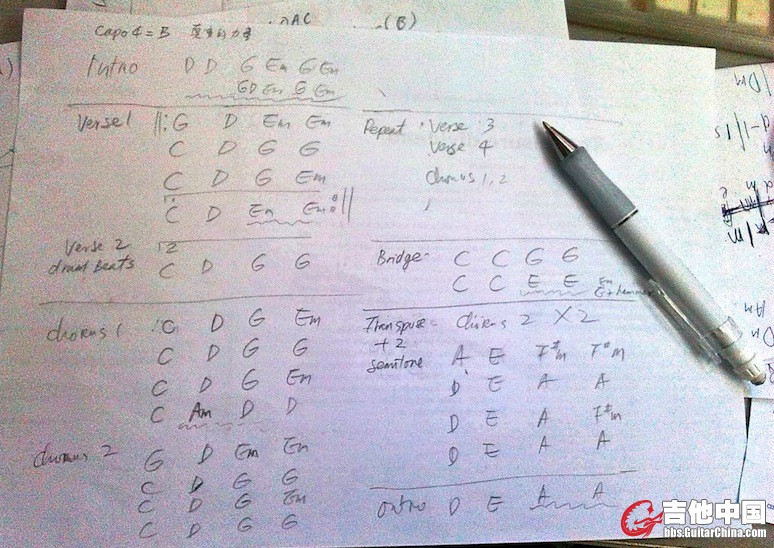 AC
(B)
Capo 4 = B
Intro D D G Em G Em
GD Em G Em
Verse 1 ||: G D Em Em
C D G G
C D G Em
C D Em Em :||
Verse 2
drum beats
2
C D G G
Chorus 1 G D G Em
C D G G
C D G Em
C Am D D
Chorus 2 G D Em Em
C D G G
C D G Em
C D G G
Repeat : Verse 3
Verse 4
Chorus 1, 2
Bridge - C C G G
C C E E Em
Transpose - Chorus 2 X 2
+2
semitone
A E F#m F#m
D E A A
D E A F#m
D E A A
outro D E A A
Dm
吉他中国
bbs.GuitarChina.com